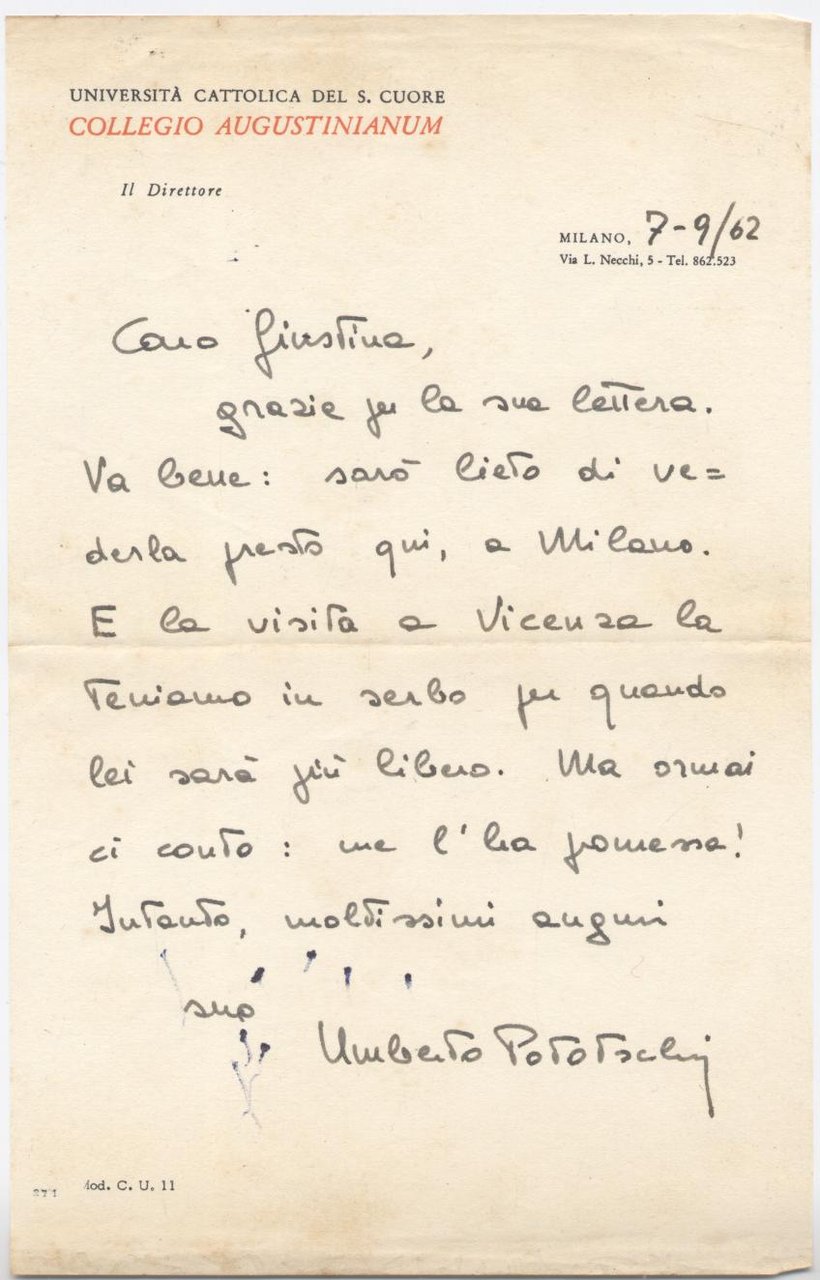 UNIVERSITÀ CATTOLICA DEL S. CUORE
COLLEGIO AUGUSTINIANUM
Il Direttore
MILANO, 7-9/62
Via L. Necchi, 5 - Tel. 862.523
Caro Giustina,
grazie per la sua lettera.
Va bene: sarò lieto di ve=
derla presto qui, a Milano.
E la visita a Vicenza la
teniamo in serbo per quando
lei sarà più libero. Ma ormai
ci conto: me l'ha promessa!
Intanto, moltissimi auguri
suo
Umberto Pototschnig
271 Mod. C. U. 11